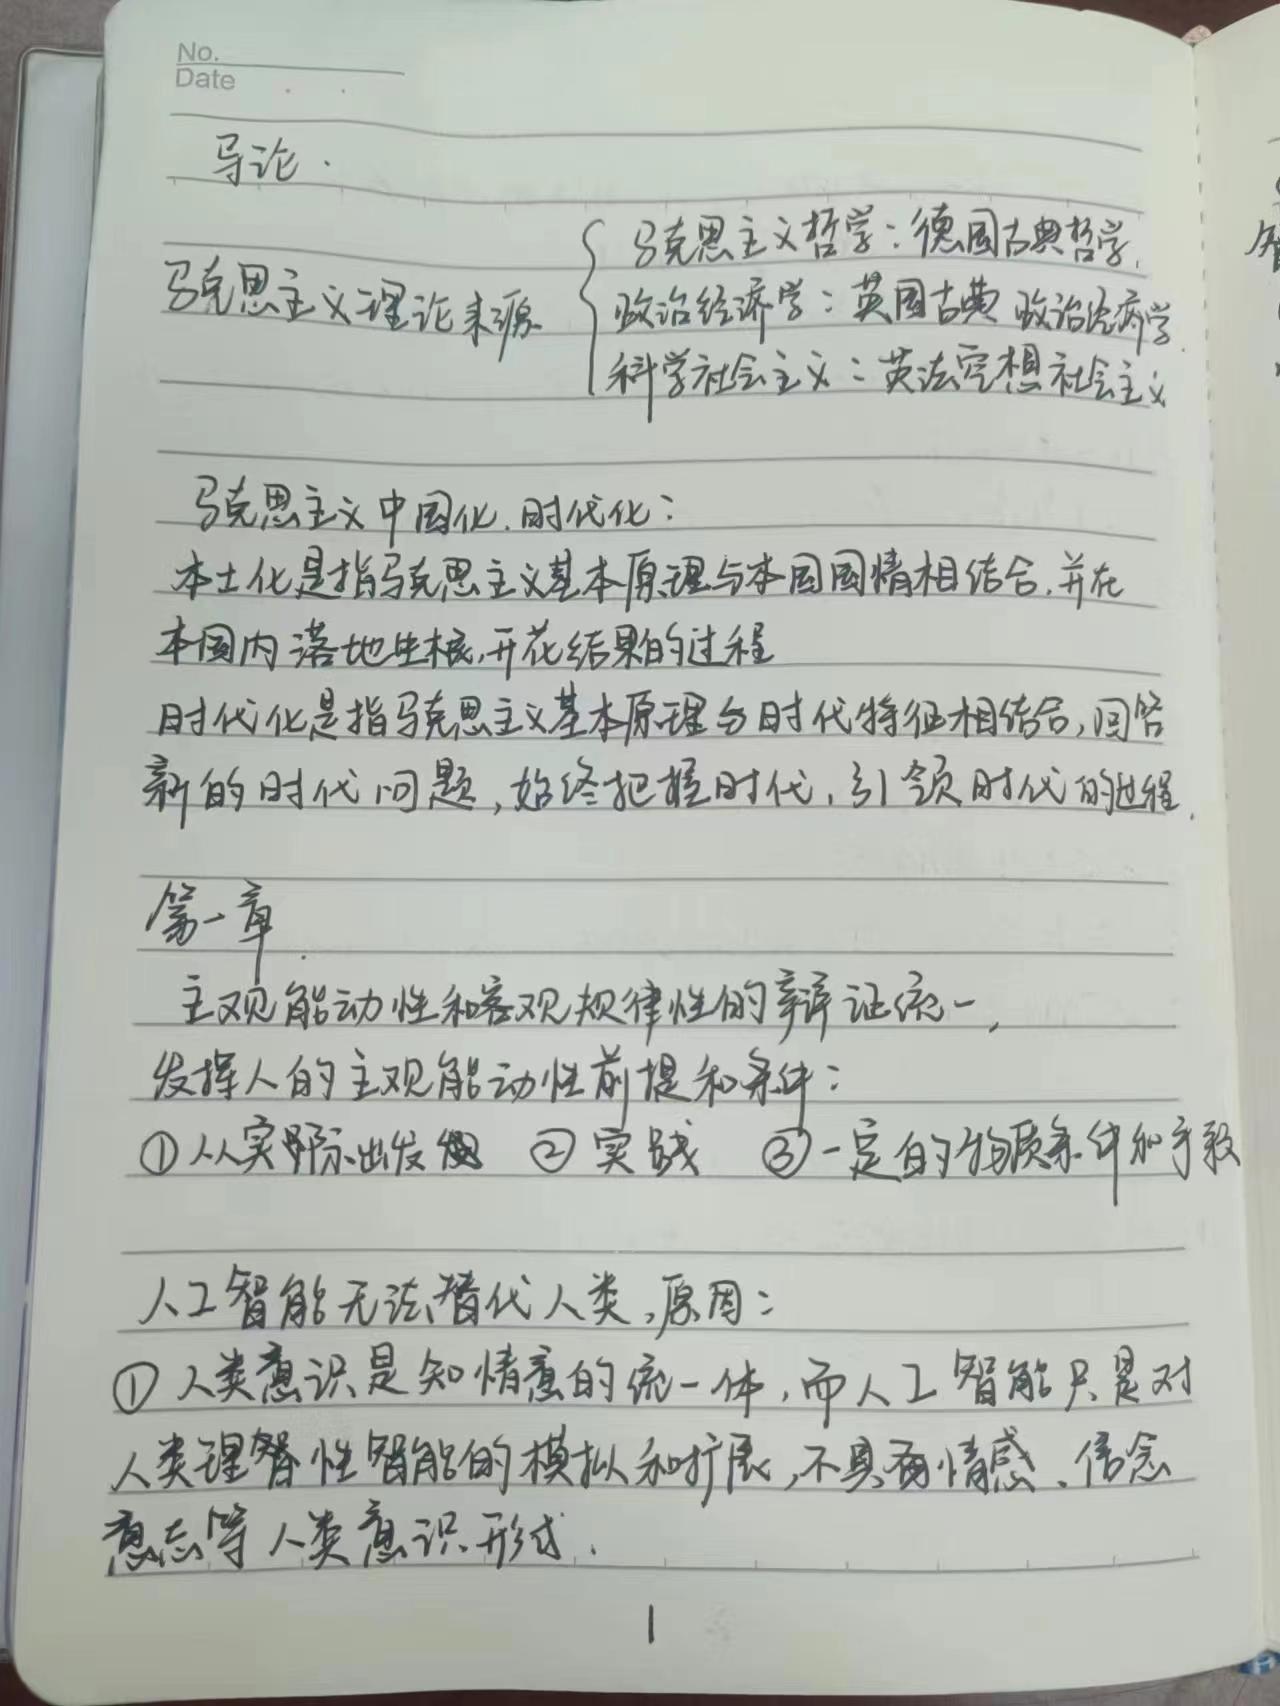 No.
Date
导论.
马克思主义理论来源
马克思主义哲学：德国古典哲学.
政治经济学：英国古典政治经济学.
科学社会主义：英法空想社会主义
马克思主义中国化.时代化：
本土化是指马克思主义基本原理与本国国情相结合.并在
本国内落地生根,开花结果的过程
时代化是指马克思主义基本原理与时代特征相结合,回答
新的时代问题,始终把握时代,引领时代的过程.
第一章
主观能动性和客观规律性的辩证统一,
发挥人的主观能动性前提和条件：
①从实际出发 ②实践 ③一定的物质条件和手段
人工智能无法替代人类,原因：
①人类意识是知情意的统一体,而人工智能只是对
人类理性智能的模拟和扩展,不具有情感、信念
意志等人类意识形式.
1